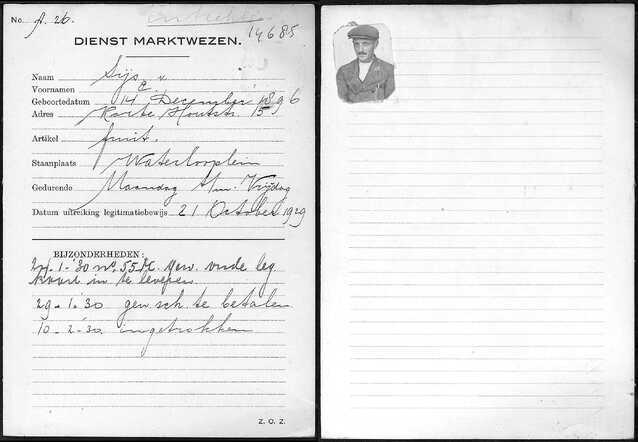 No. A. 26.
14685
DIENST MARKTWEZEN.
Naam Sijs v.
Voornamen C.
Geboortedatum 14 December 1896
Adres Korte Houtstr. 15
Artikel fruit.
Staanplaats Waterlooplein
Gedurende Maandag t/m. Vrijdag
Datum uitreiking legitimatiebewijs 21 October 1929
BIJZONDERHEDEN:
24-1-'30 no. 55 M. gew. oude leg.
kaart in te leveren.
29-1-'30 gew. sch. te betalen
10-2-'30. ingetrokken
Z. O. Z.